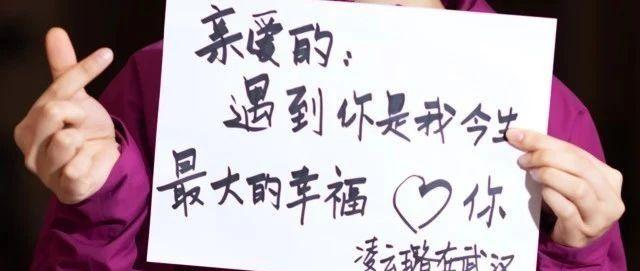 亲爱的：
遇到你是我今生
最大的幸福♡你
凌云璐在武汉